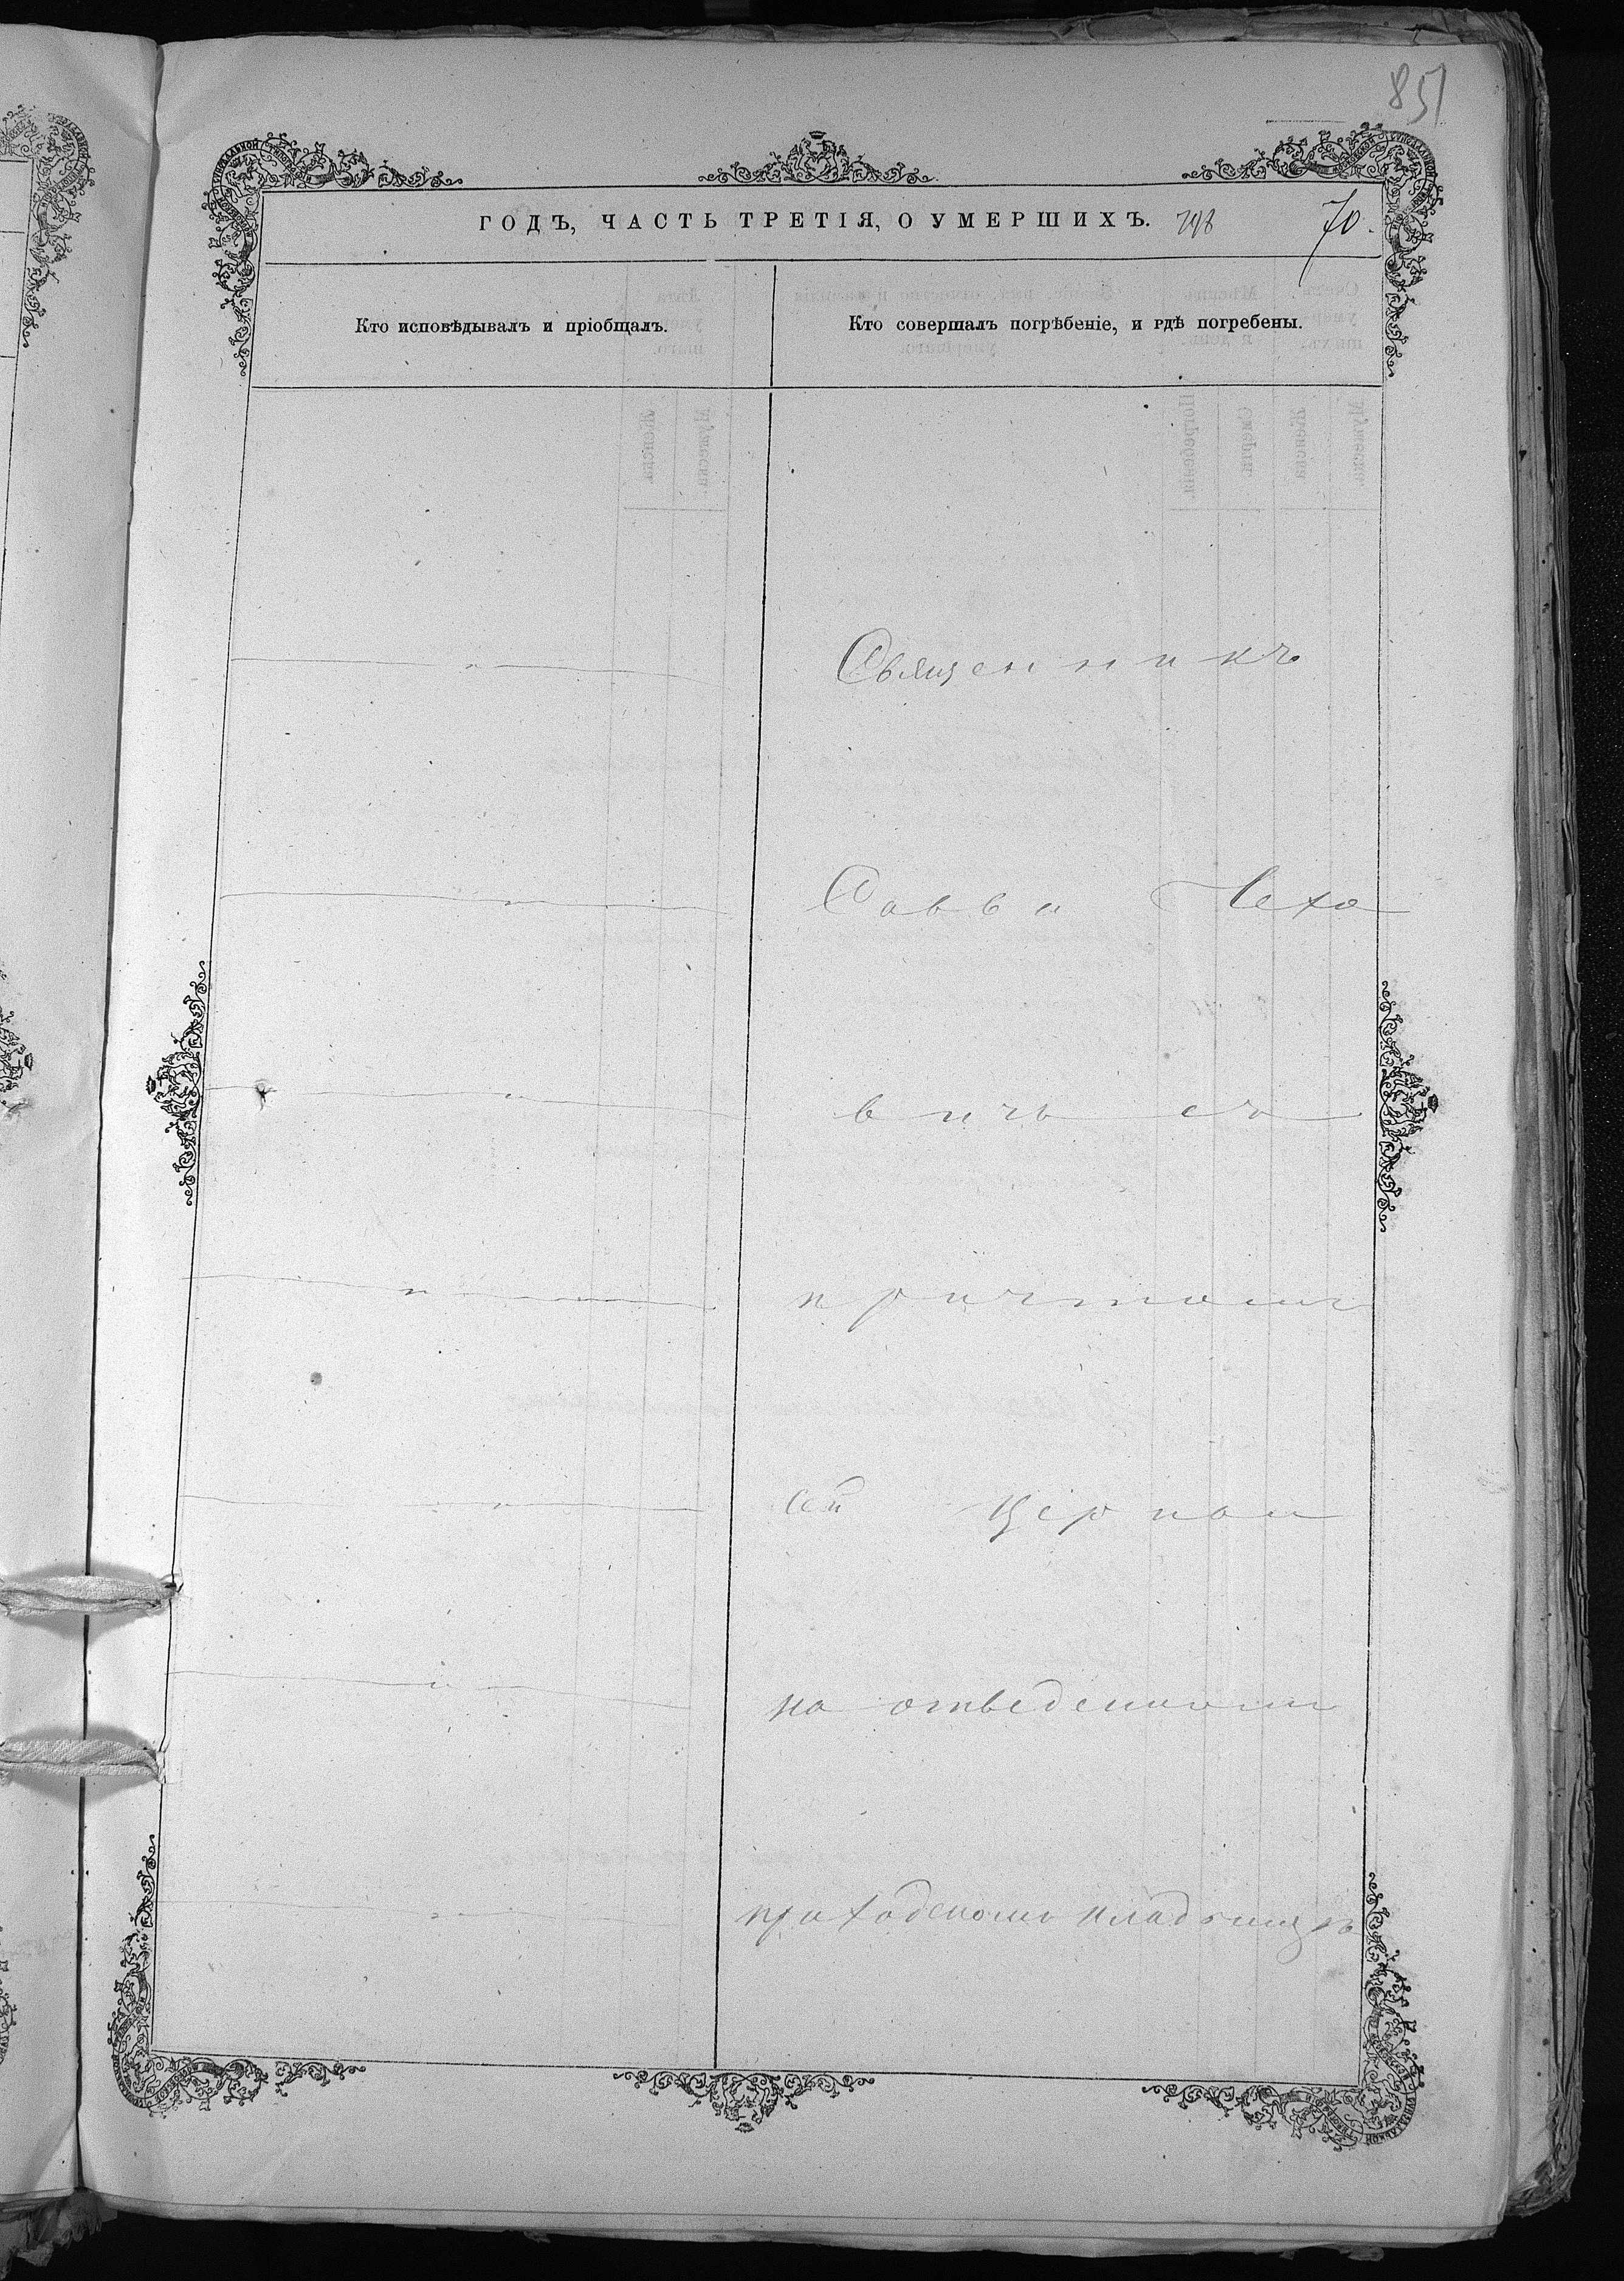 851
ГОДЪ, ЧАСТЬ ТРЕТІЯ, О УМЕРШИХЪ. 70.
Кто исповѣдывалъ и пріобщалъ.
Кто совершалъ погрѣбеніе, и гдѣ погребены.
Священникъ
Савва Чехо
вичъ съ
причтомъ
сей церкви
на отведенномъ
приходскомъ кладбищѣ